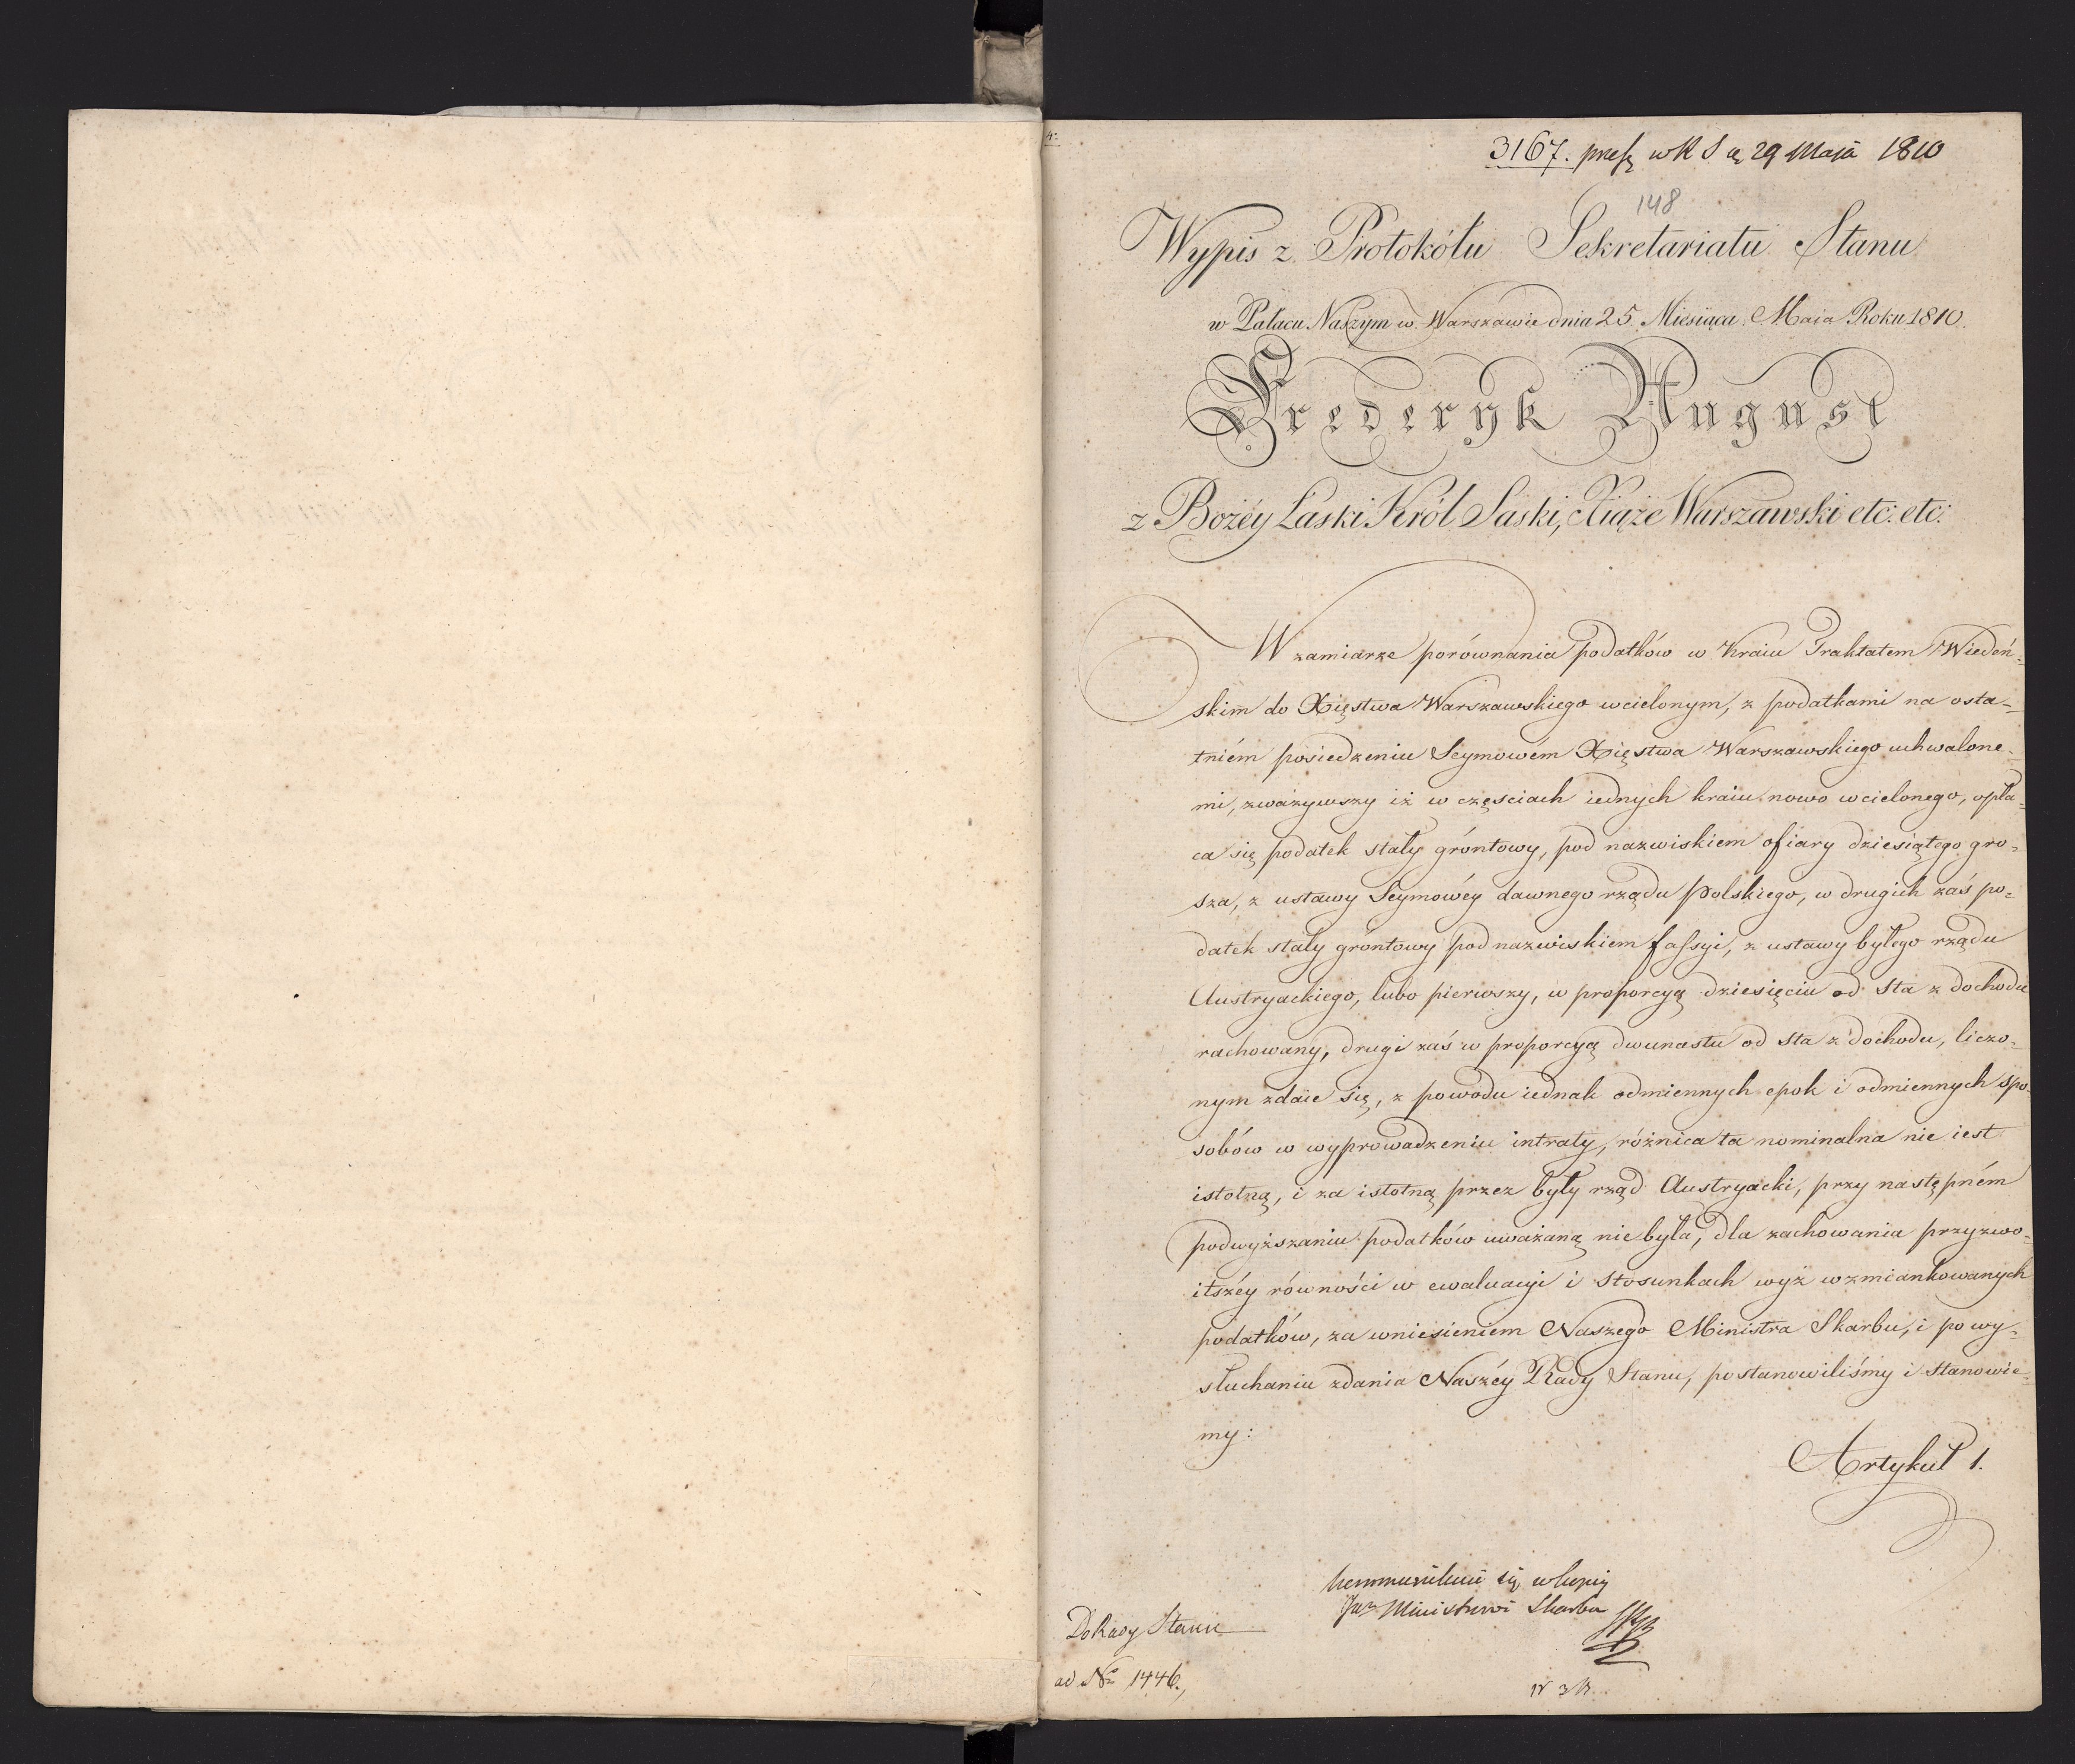 3167. 29 Maja 1810
148
Wypis z Protokółu Sekretariatu Stanu
w Pałacu Naszym w Warszawie dnia 25 Miesiąca Maia Roku 1810.
Frederyk August
z Bożéy Łaski Król Saski, Xiąże Warszawski etc: etc:
W zamiarze porównania podatków w Kraiu Traktatem Wiedeń=
skim do Xięstwa Warszawskiego wcielonym, z podatkami na osta=
tniém posiedzeniu Seymowém Xięstwa Warszawskiego uchwalone=
mi, zważywszy iż w częściach iednych kraiu nowo wcielonego, opła=
ca się podatek stały gróntowy, pod nazwiskiem ofiary dziesiątego gro=
sza, z ustawy Seymowéy dawnego rządu Polskiego, w drugich zaś po=
datek stały gróntowy pod nazwiskiem fassyi, z ustawy byłego rządu
Austryackiego, lubo pierwszy, w proporcyą dziesięciu od sta z dochodu
rachowany, drugi zaś w proporcyą dwunastu od sta z dochodu, liczo=
nym zdaie się, z powodu iednak odmiennych epok i odmiennych spo=
sobów w wyprowadzeniu intraty, różnica ta nominalna nie iest
istotną, i za istotną przez były rząd Austryacki, przy następném
podwyższaniu podatków uważaną nie była, dla zachowania przyzwo=
itszéy równości w ewaluacyi i stosunkach wyż wzmiankowanych
podatków, za wniesieniem Naszego Ministra Skarbu, i po wy=
słuchaniu zdania Naszéy Rady Stanu, postanowiliśmy i stanowie=
my:
Artykuł 1.
kommunikuie się w kopii
Ministrowi Skarbu
Do Rady Stanu
ad No 1446.